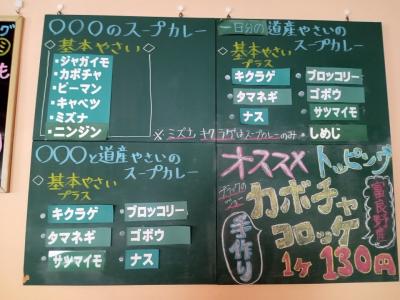 〇〇〇のスープカレー
◇基本やさい◇
・ジャガイモ
・カボチャ
・ピーマン
・キャベツ
・ミズナ
・ニンジン
一日分の道産やさいの
スープカレー
◇基本やさい◇
プラス
・キクラゲ
・ブロッコリー
・タマネギ
・ゴボウ
・ナス
・サツマイモ
・しめじ
※ミズナ、キクラゲはスープカレーのみ
〇〇〇と道産やさいの
スープカレー
◇基本やさい◇
プラス
・キクラゲ
・ブロッコリー
・タマネギ
・ゴボウ
・サツマイモ
・ナス
オススメトッピング
富良野産
カボチャ
コロッケ
手作り
1ヶ130円